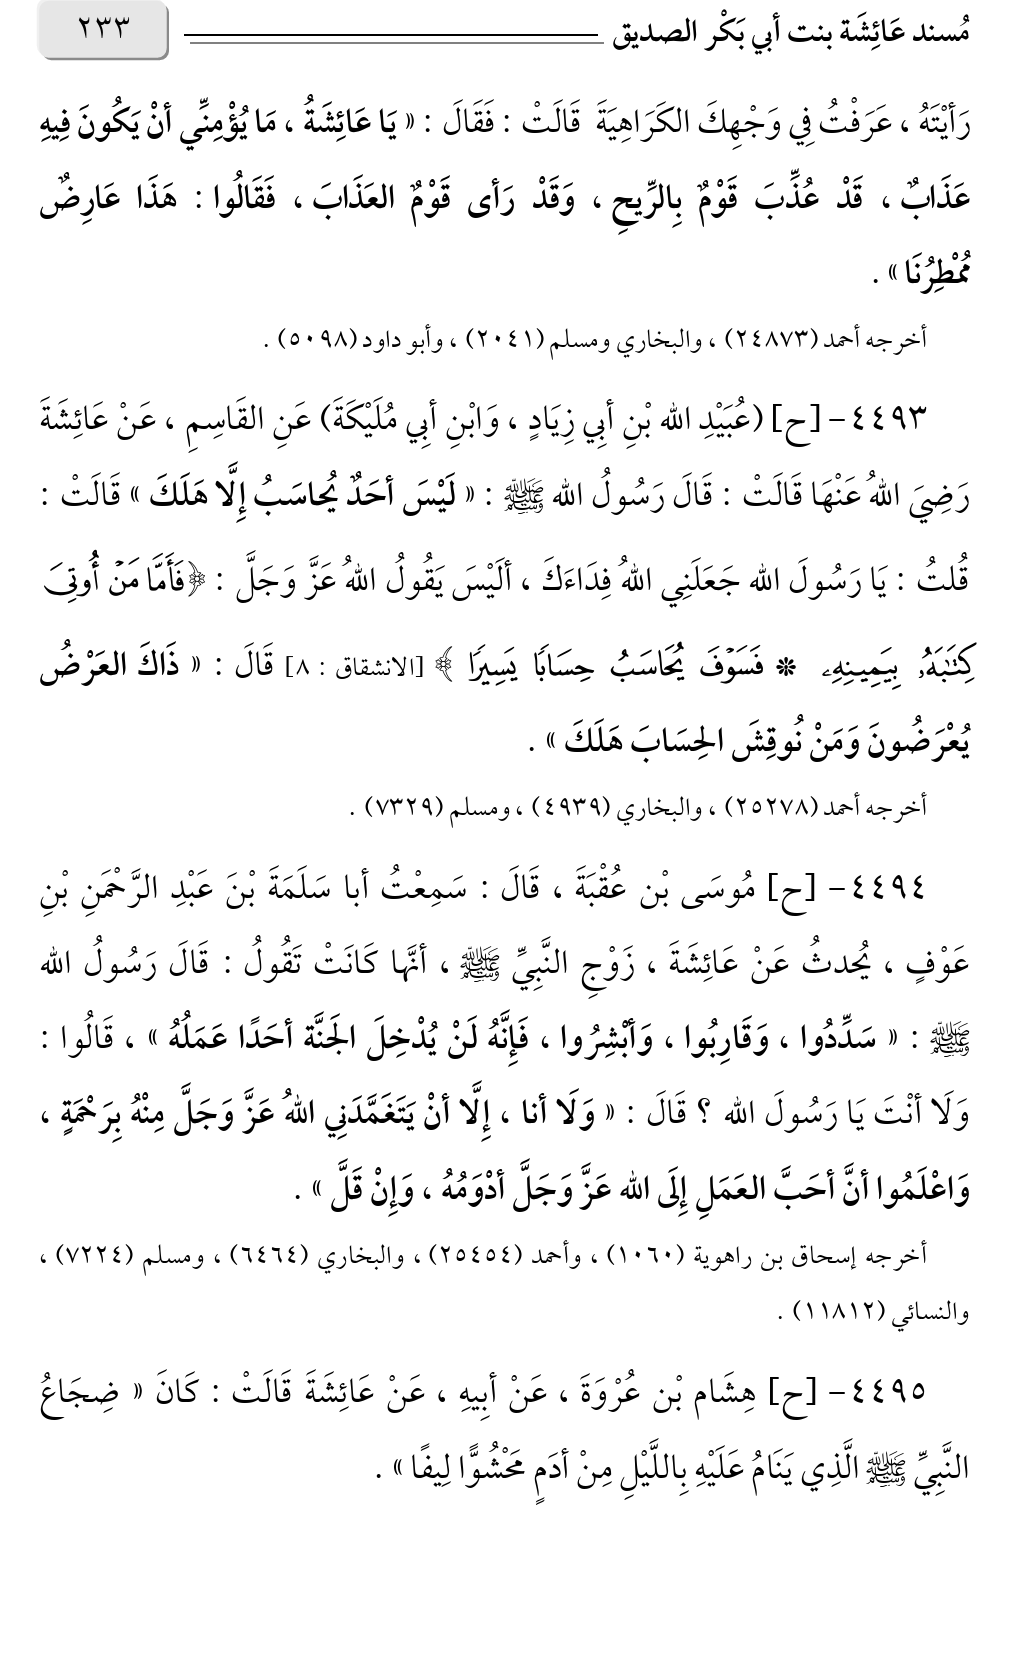 مُسند عَائِشَة بنت أبي بَكْر الصديق
٢٣٣
رَأيْتَهُ ، عَرَفْتُ فِي وَجْهِكَ الكَرَاهِيَةَ قَالَتْ : فَقَالَ : « يَا عَائِشَةُ ، مَا يُؤْمِنِّي أنْ يَكُونَ فِيهِ
عَذَابٌ ، قَدْ عُذِّبَ قَوْمٌ بِالرِّيحِ ، وَقَدْ رَأى قَوْمٌ العَذَابَ ، فَقَالُوا : هَذَا عَارِضٌ
مُمْطِرُنَا » .
أخرجه أحمد (٢٤٨٧٣) ، والبخاري ومسلم (٢٠٤١) ، وأبو داود (٥٠٩٨) .
٤٤٩٣- [ح] (عُبَيْدِ الله بْنِ أبِي زِيَادٍ ، وَابْنِ أبِي مُلَيْكَةَ) عَنِ القَاسِمِ ، عَنْ عَائِشَةَ
رَضِيَ اللهُ عَنْهَا قَالَتْ : قَالَ رَسُولُ الله ﷺ : « لَيْسَ أحَدٌ يُحاسَبُ إِلَّا هَلَكَ » قَالَتْ :
قُلتُ : يَا رَسُولَ الله جَعَلَنِي اللهُ فِدَاءَكَ ، ألَيْسَ يَقُولُ اللهُ عَزَّ وَجَلَّ : ﴿فَأَمَّا مَنۡ أُوتِيَ
كِتَٰبَهُۥ بِيَمِينِهِۦ * فَسَوۡفَ يُحَاسَبُ حِسَابٗا يَسِيرٗا ﴾ [الانشقاق : ٨] قَالَ : « ذَاكَ العَرْضُ
يُعْرَضُونَ وَمَنْ نُوقِشَ الحِسَابَ هَلَكَ » .
أخرجه أحمد (٢٥٢٧٨) ، والبخاري (٤٩٣٩) ، ومسلم (٧٣٢٩) .
٤٤٩٤- [ح] مُوسَى بْن عُقْبَةَ ، قَالَ : سَمِعْتُ أبا سَلَمَةَ بْنَ عَبْدِ الرَّحْمَنِ بْنِ
عَوْفٍ ، يُحدثُ عَنْ عَائِشَةَ ، زَوْجِ النَّبِيِّ ﷺ ، أنَّها كَانَتْ تَقُولُ : قَالَ رَسُولُ الله
ﷺ : « سَدِّدُوا ، وَقَارِبُوا ، وَأبْشِرُوا ، فَإِنَّهُ لَنْ يُدْخِلَ الجَنَّة أحَدًا عَمَلُهُ » ، قَالُوا :
وَلَا أنْتَ يَا رَسُولَ الله ؟ قَالَ : « وَلَا أنا ، إِلَّا أنْ يَتَغَمَّدَنِي اللهُ عَزَّ وَجَلَّ مِنْهُ بِرَحْمَةٍ ،
وَاعْلَمُوا أنَّ أحَبَّ العَمَلِ إِلَى الله عَزَّ وَجَلَّ أدْوَمُهُ ، وَإِنْ قَلَّ » .
أخرجه إسحاق بن راهوية (١٠٦٠) ، وأحمد (٢٥٤٥٤) ، والبخاري (٦٤٦٤) ، ومسلم (٧٢٢٤) ،
والنسائي (١١٨١٢) .
٤٤٩٥- [ح] هِشَام بْن عُرْوَةَ ، عَنْ أبِيهِ ، عَنْ عَائِشَةَ قَالَتْ : كَانَ « ضِجَاعُ
النَّبِيِّ ﷺ الَّذِي يَنَامُ عَلَيْهِ بِاللَّيْلِ مِنْ أدَمٍ مَحْشُوًّا لِيفًا » .